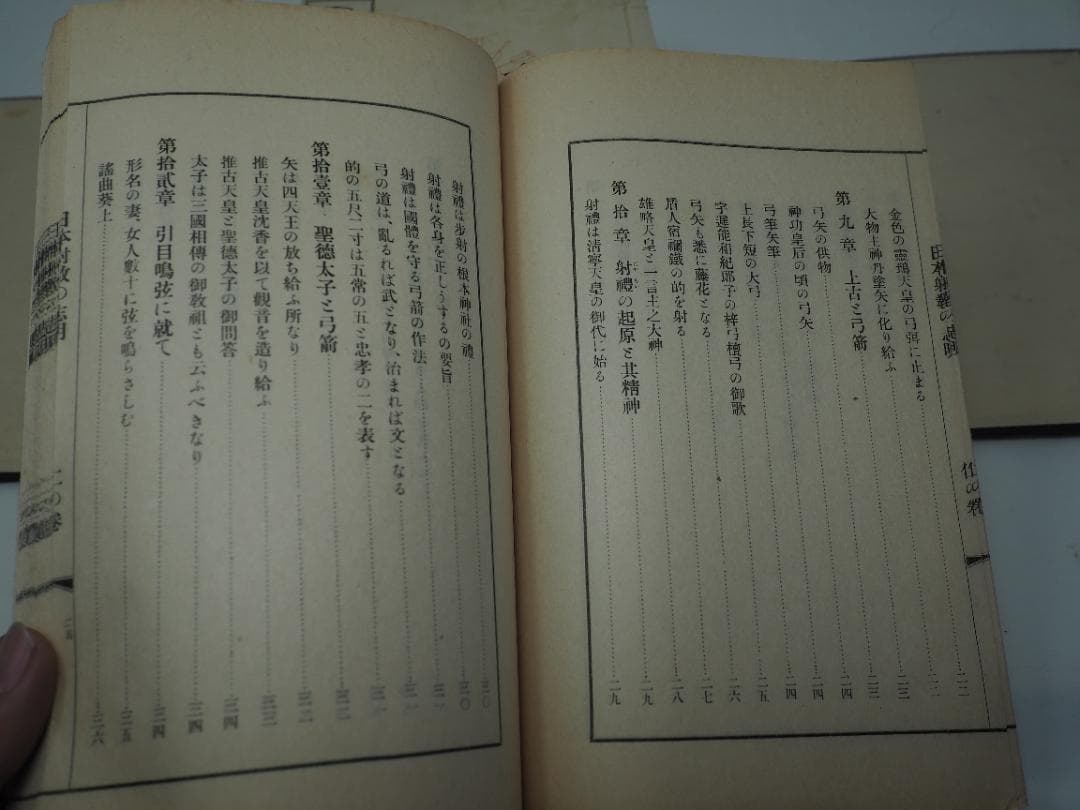 金色の靈鵄天皇の弓弭に止まる……二二
大物主神丹塗矢に化り給ふ……二三
第九章 上古と弓箭……二四
弓矢の供物……二四
神功皇后の頃の弓矢……二四
弓筆矢筆……二五
上長下短の大弓……二六
宇遲能和紀郎子の梓弓檀弓の御歌……二七
弓矢も悉に藤花となる……二八
盾人宿禰鐵の的を射る……二九
雄略天皇と一言主之大神……二九
第拾章 射禮の起原と其精神
射禮は清寧天皇の御代に始る
の卷
射禮は步射の根本神社の禮……三〇
射禮は各身を正しうするの要旨……三〇
射禮は國體を守る弓箭の作法
弓の道は、亂るれば武となり、治まれば文となる
的の五尺二寸は五常の五と忠孝の二を表す
第拾壹章 聖德太子と弓箭
矢は四天王の放ち給ふ所なり
推古天皇沈香を以て觀音を造り給ふ
推古天皇と聖德太子の御問答……三四
太子は三國相傳の御敎祖とも云ふべきなり……三四
第拾貳章 引目鳴弦に就て……三四
形名の妻、女人數十に弦を鳴らさしむ……三五
謠曲葵上……三六
の卷